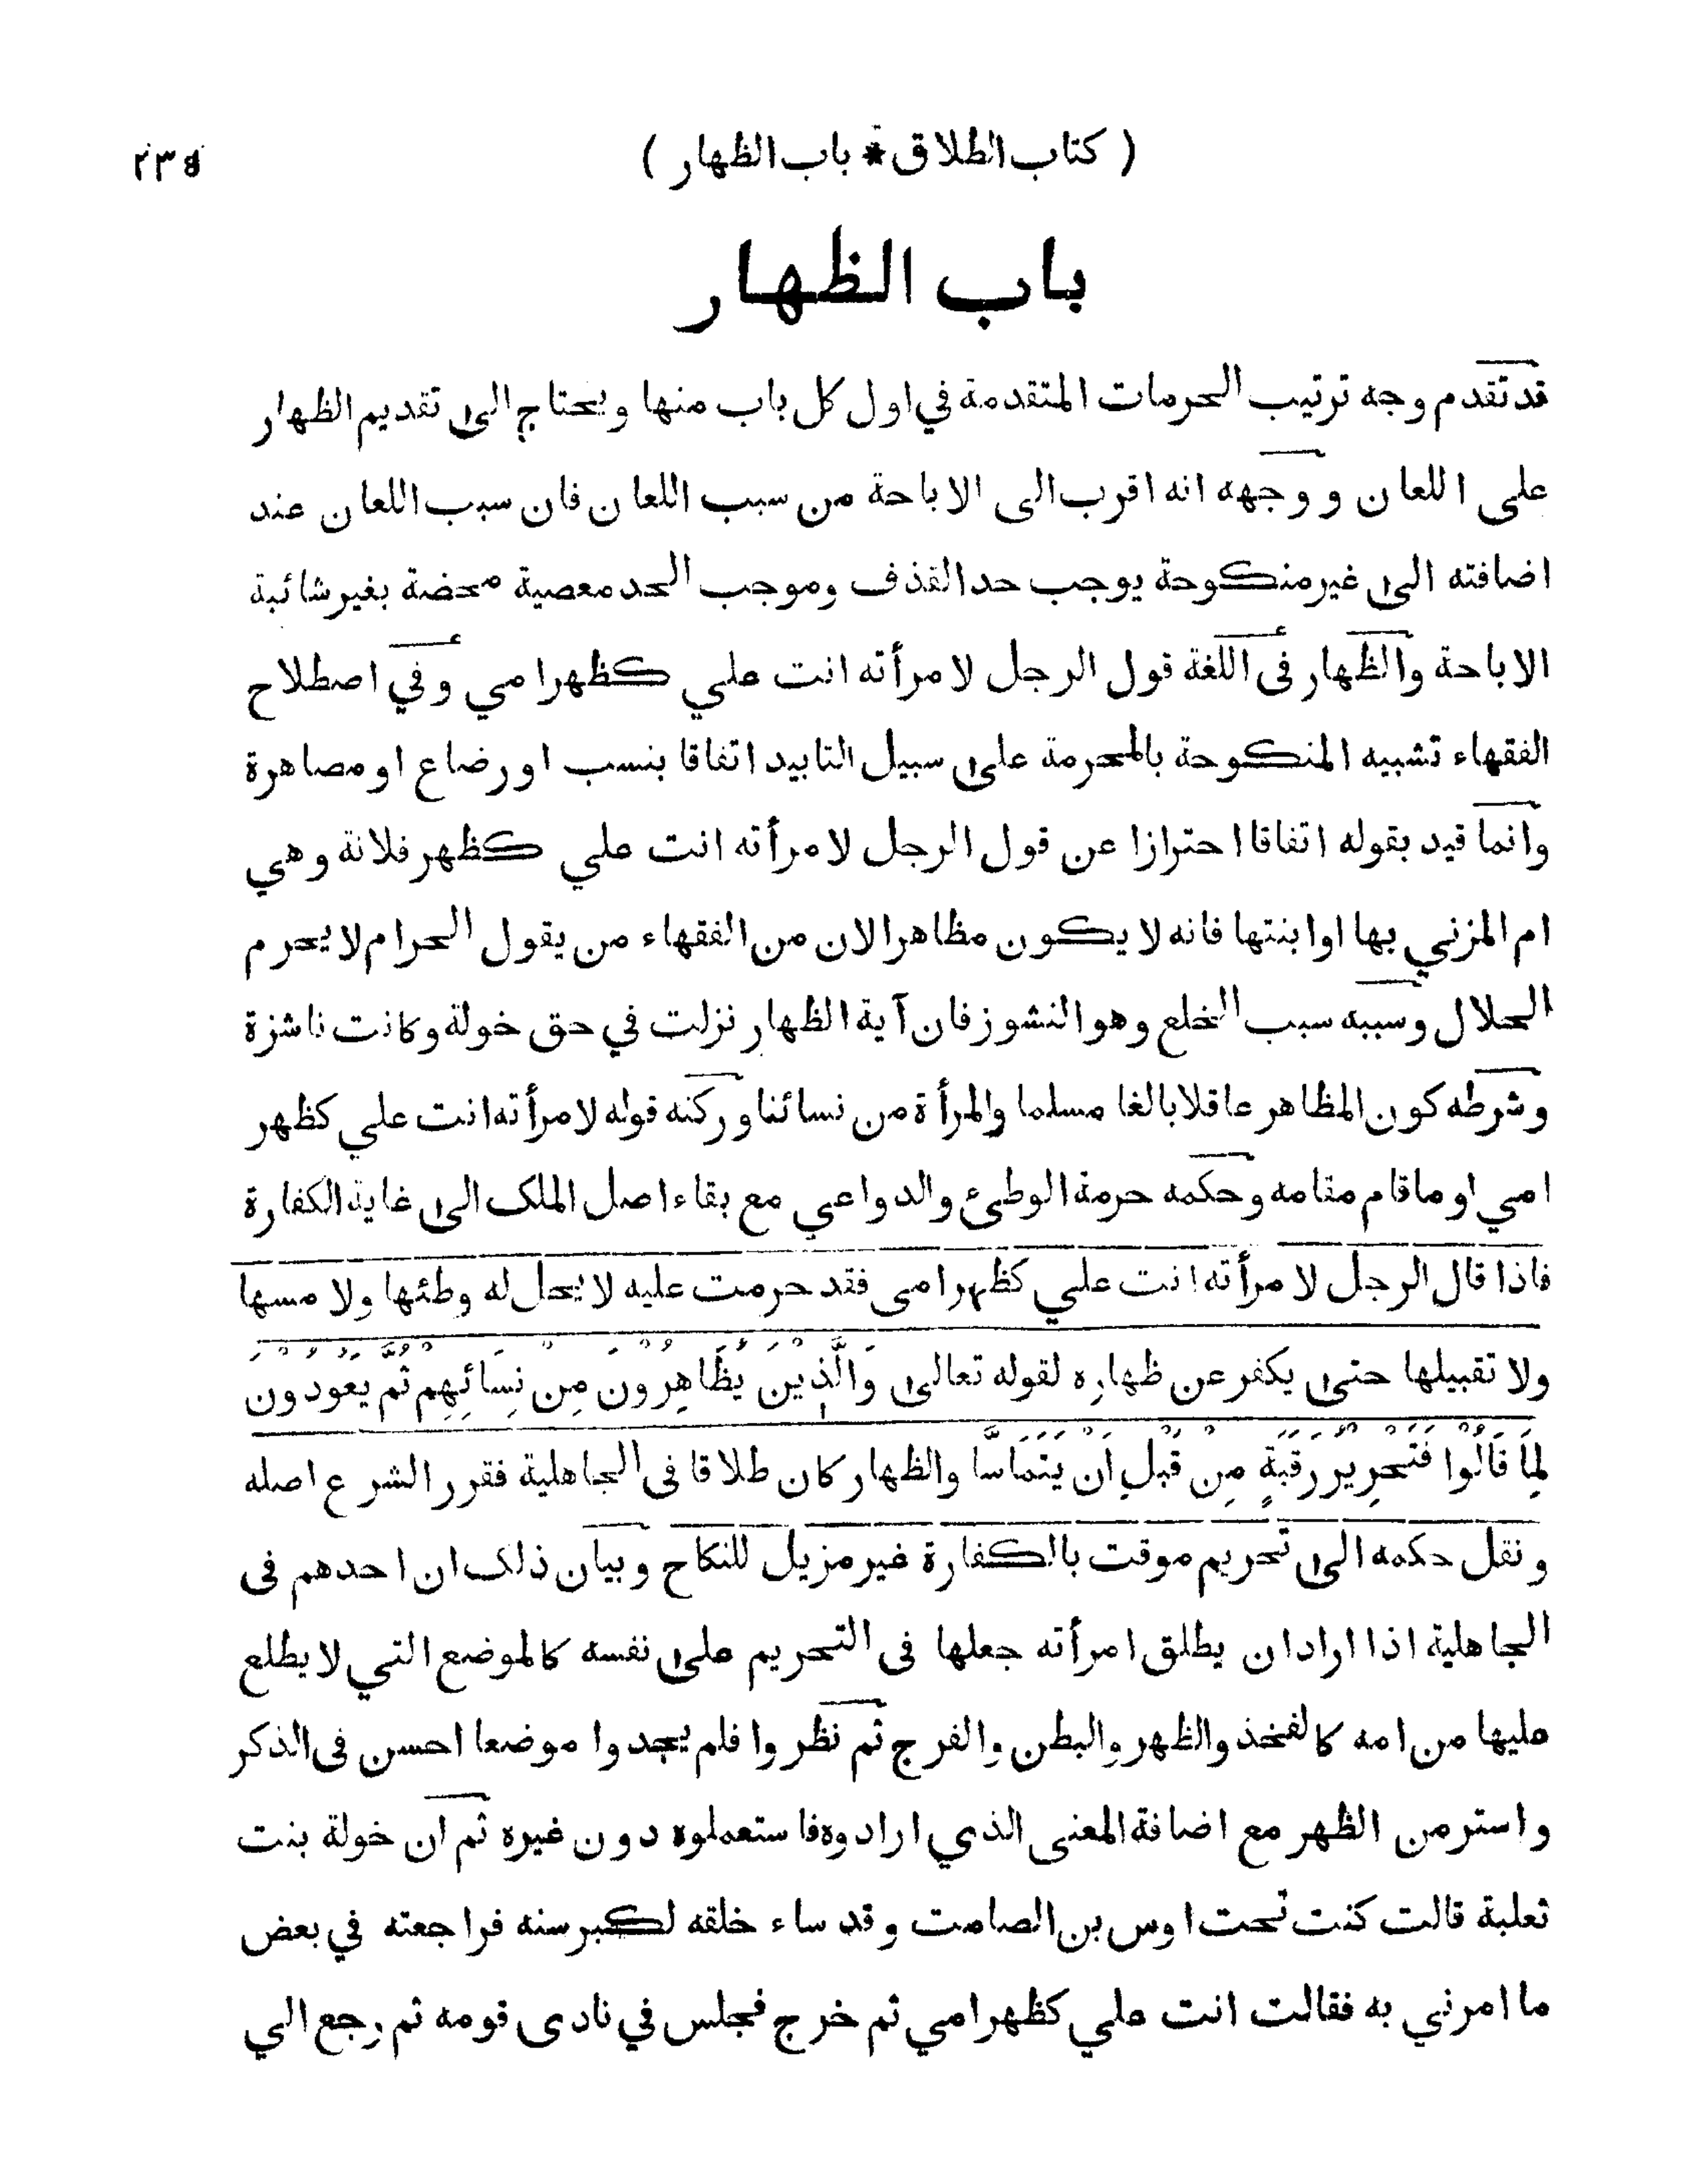 ( كتاب الطلاق * باب الظهار )
٢٣٥
باب الظهار
قد تقدم وجه ترتيب الحرمات المتقدمة في اول كل باب منها ويحتاج الى تقديم الظهار
على اللعان ووجهه انه اقرب الى الاباحة من سبب اللعان فان سبب اللعان عند
اضافته الى غير منكوحة يوجب حد القذف وموجب الحد معصية محضة بغير شائبة
الاباحة والظهار فى اللغة قول الرجل لامرأته انت علي كظهر امي وفي اصطلاح
الفقهاء تشبيه المنكوحة بالمحرمة على سبيل التابيد اتفاقا بنسب او رضاع او مصاهرة
وانما قيد بقوله اتفاقا احترازا عن قول الرجل لامرأته انت علي كظهر فلانة وهي
ام المزني بها او ابنتها فانه لا يكون مظاهرا لان من الفقهاء من يقول الحرام لا يحرم
الحلال وسببه سبب الخلع وهو النشوز فان آية الظهار نزلت في حق خولة وكانت ناشزة
وشرطه كون المظاهر عاقلا بالغا مسلما والمرأة من نسائنا وركنه قوله لامرأته انت علي كظهر
امي او ما قام مقامه وحكمه حرمة الوطئ والدواعي مع بقاء اصل الملك الى غاية الكفارة
فاذا قال الرجل لامرأته انت علي كظهر امى فقد حرمت عليه لا يحل له وطئها ولا مسها
ولا تقبيلها حتى يكفر عن ظهاره لقوله تعالى وَالَّذِيْنَ يُظَاهِرُوْنَ مِنْ نِسَائِهِمْ ثُمَّ يَعُوْدُوْنَ
لِمَا قَالُوْا فَتَحْرِيْرُ رَقَبَةٍ مِنْ قَبْلِ اَنْ يَتَمَاسَّا والظهار كان طلاقا فى الجاهلية فقرر الشرع اصله
ونقل حكمه الى تحريم موقت بالكفارة غير مزيل للنكاح وبيان ذلك ان احدهم فى
الجاهلية اذا اراد ان يطلق امرأته جعلها فى التحريم على نفسه كالموضع التي لا يطلع
عليها من امه كالفخذ والظهر والبطن والفرج ثم نظروا فلم يجدوا موضعا احسن فى الذكر
واستر من الظهر مع اضافة المعنى الذي ارادوه فاستعملوه دون غيره ثم ان خولة بنت
ثعلبة قالت كنت تحت اوس بن الصامت وقد ساء خلقه لكبر سنه فراجعته في بعض
ما امرني به فقالت انت علي كظهر امي ثم خرج فجلس في نادى قومه ثم رجع الي